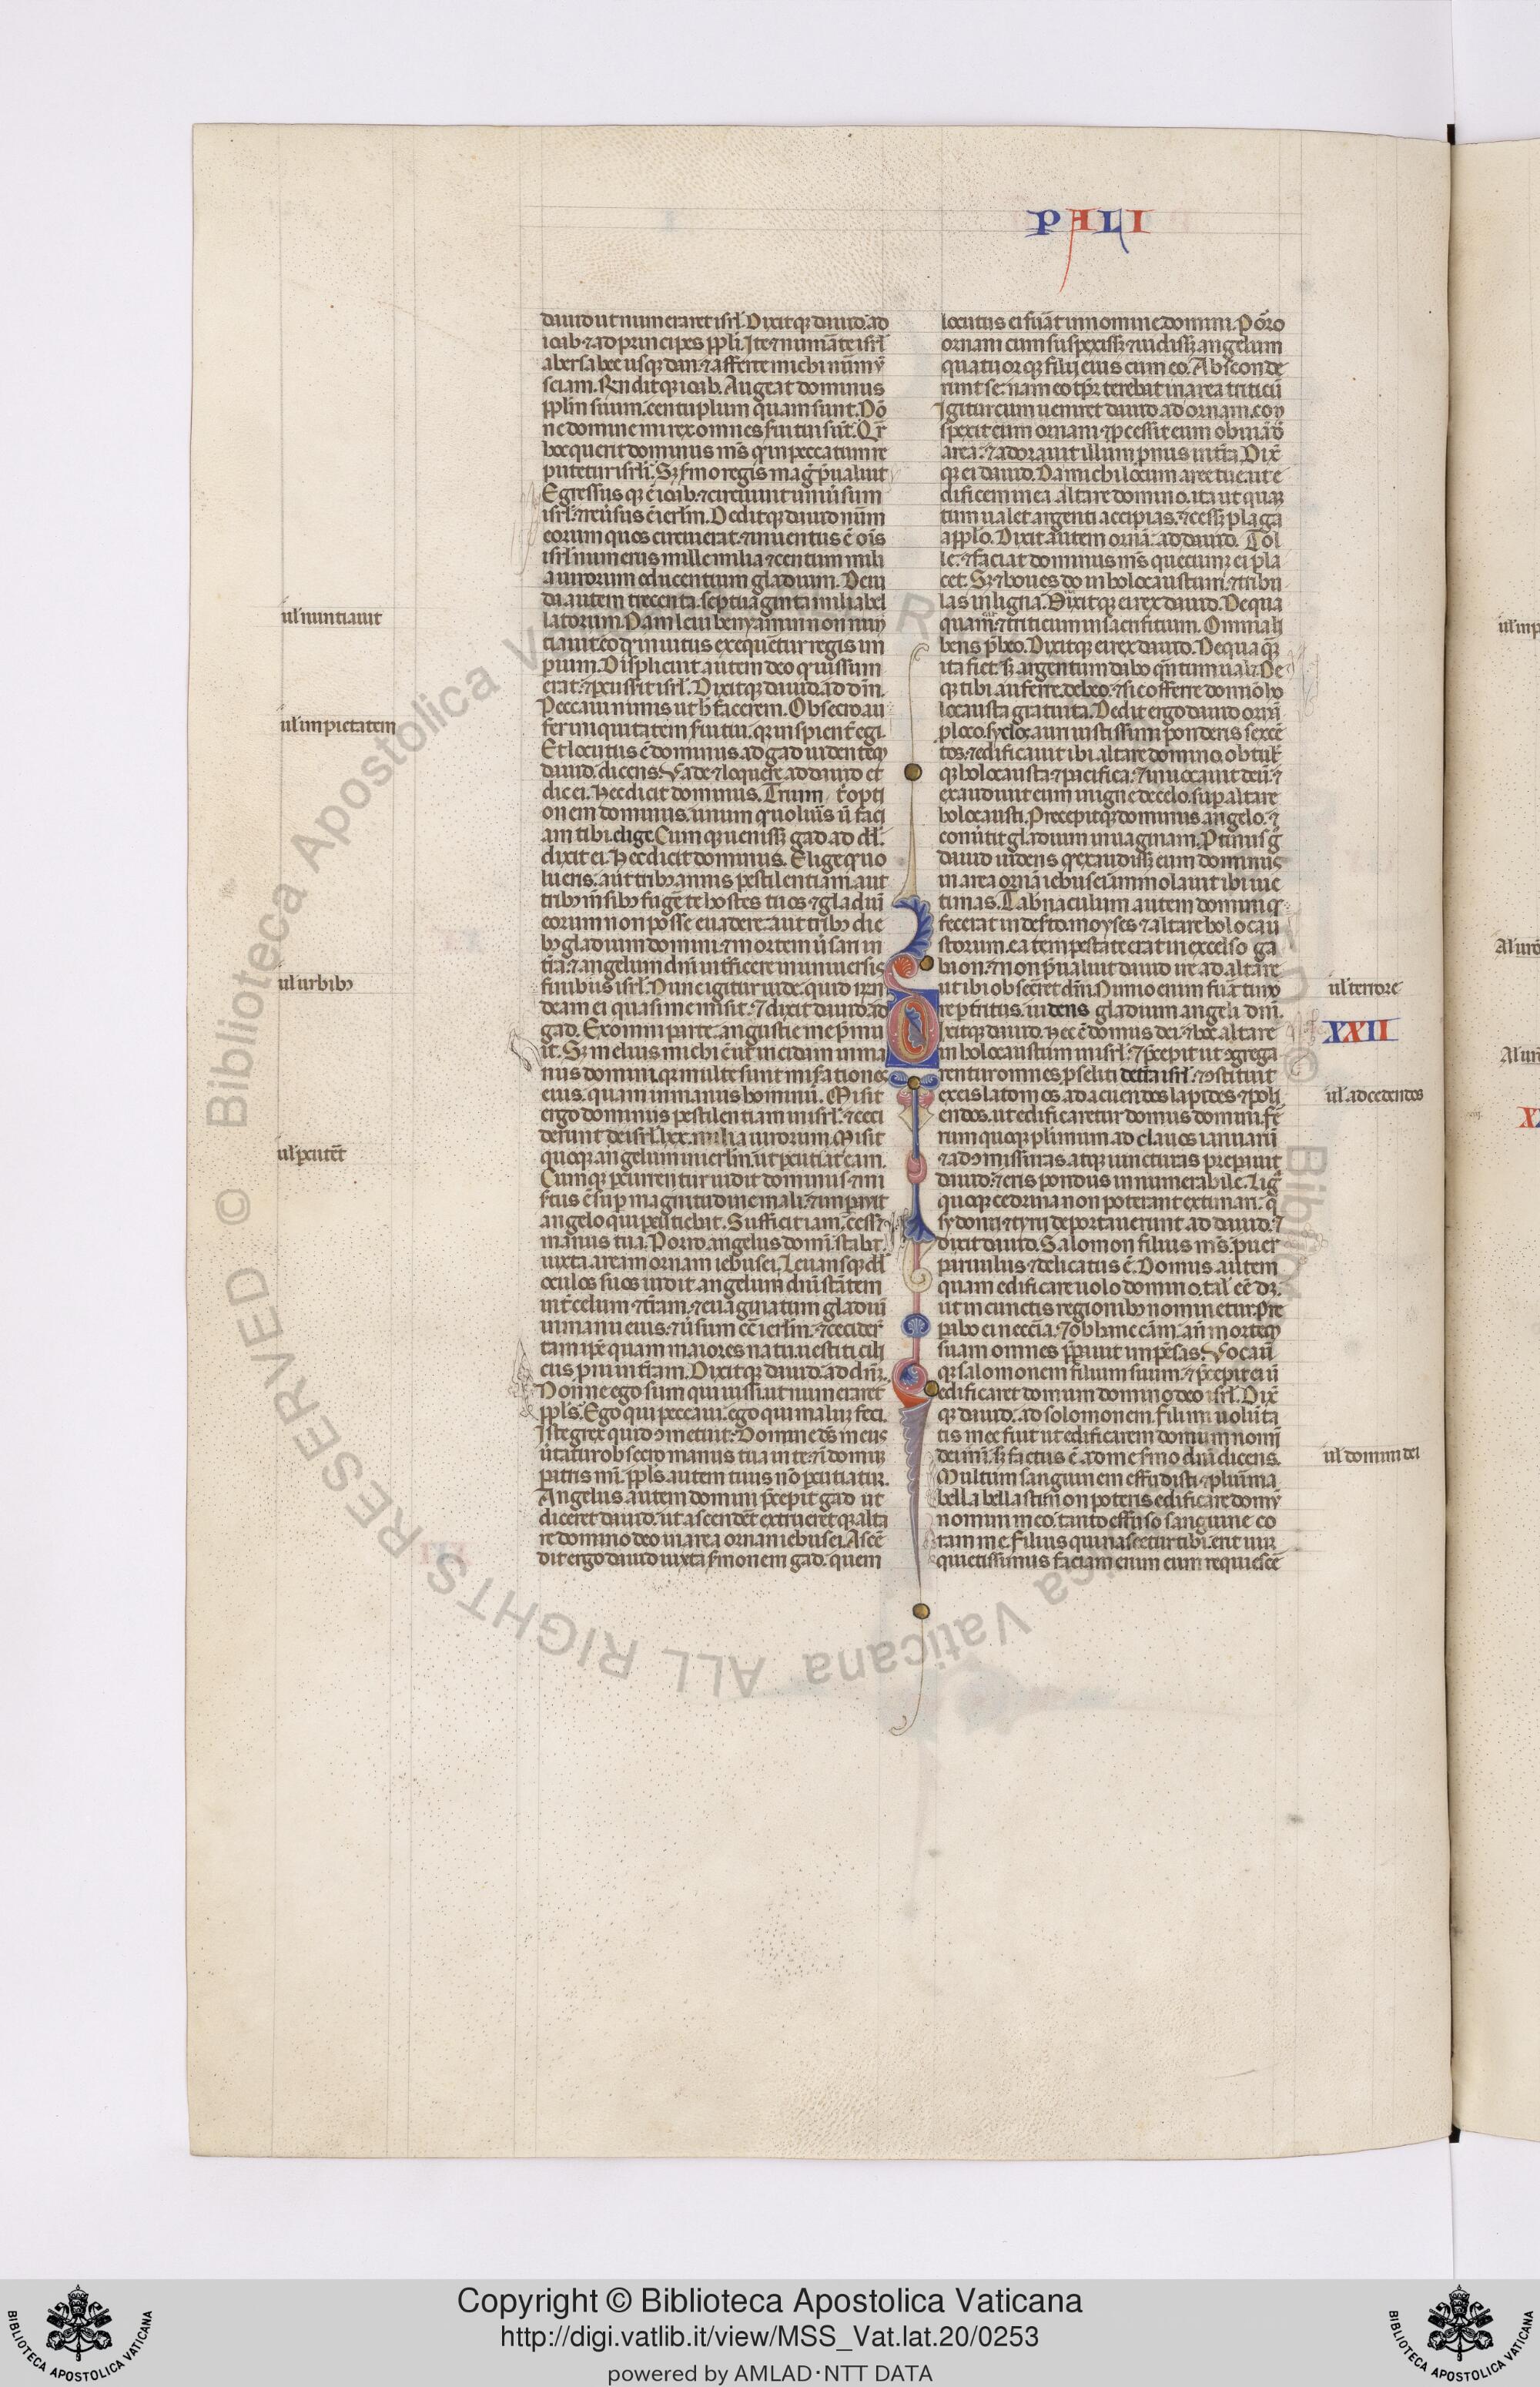 PALI
dauid ut numeraret isrl̄. Dixitqꝫ dauid. ad
ioab ⁊ ad principes pp̄li. Ite ⁊ numerate isrl̄
a bersabee usqꝫ dan. ⁊ afferte michi num̄ ut̄
sciam. Rn̄ditqꝫ ioab. Augeat dominus
pp̄lm suum. centuplum quam sunt. Nō
ne domine mi rex omnes serui tui sūt. Qr̄
hoc querit dominus m̄s qd̄ in peccatum re
putetur isrl̄i. Sꝫ sermo regis mag̅ p̄ualuit
Egressus qꝫ ē ioab. ⁊ circuiuit uniūsum
isrl̄. ⁊ reūsus ē ierl̄m. Deditqꝫ dauid nūm
eorum quos circuierat. ⁊ inuentus ē oīs
isrl̄ numerus mille milia ⁊ centum mili
a uirorum educentium gladium. De iu
da autem trecenta. septuaginta milia bel
latorum. Nam leui ⁊ beniamin non nūꝫ
ciauit. eo qd̄ inuitus exequetur regis im
pium. Displicuit autem deo qd̄ iussum
erat. ⁊ percussit isrl̄. Dixitqꝫ dauid. ad dm̄.
Peccaui nimis ut h̄ facerem. Obsecro au
fer iniquitatem serui tui. qꝫ insipient̄ egi.
Et locutus ē dominus. ad gad uidentem
dauid. dicens. Vade ⁊ loquere. ad dauid et
dic ei. Hec dicit dominus. Trium t̄ opti
onem do minus. unum quod uolūis ut̄ faci
am tibi. elige. Cum qꝫ uenissꝫ gad. ad dd̄.
dixit ei. Hec dicit dominus. Elige quod uo
lueris. aut tribꝫ annis pestilentiam. aut
tribꝫ m̄sibꝫ fugē te hostes tuos ⁊ gladiū
eorum non posse euadere. aut tribꝫ die
bꝫ gladium domini. ⁊ mortem ūsari in
tr̄a. ⁊ angelum dn̄i int̄ficere in uniuersis
finibus isrl̄. Nunc igitur uide. quid rn̄
deam ei qui me misit. ⁊ dixit dauid. ad
gad. Ex omni parte. angustie me p̄mu
nt̄. Sꝫ melius michi ē ut incidam in ma
nus domini. qꝫ multe sunt misationes
eius. quam in manus hominū. Misit
ergo dominus pestilentiam in isrl̄. ⁊ ceci
derunt de isrl̄. lxx. milia uirorum. Misit
quoqꝫ angelum in ierl̄m. ut percutiat eam.
Cumqꝫ percuteretur uidit dominus. ⁊ mi
sertus ē super magnitudine mali. ⁊ imperauit
angelo qui percutiebat. Sufficit iam. cessꝫ
manus tua. Porro angelus domini stabat
iuxta aream ornam iebusei. Leuansqꝫ dd̄
oculos suos uidit angelum dn̄i stātem
int̄ celum ⁊ tr̄am. ⁊ euaginatum gladiū
in manu eius. ⁊ ūsum cō̄ ierl̄m. ⁊ cecider̄
tam ipē quam maiores natu. uestiti cili
cus. proni in tr̄am. Dixitqꝫ dauid. ad dm̄.
Nonne ego sum qui iussi. ut numeraret
pp̄ls. Ego qui peccaui. ego qui malum feci.
Iste grex quid ꝯmeruit. Domine ds̄ meus
ūtatur obsecro manus tua in me. ⁊ ī domum
patris mī. pp̄ls. autem tuus nō percutiatur.
Angelus autem domini p̄cepit gad ut
diceret dauid. ut ascenderet extrueret qꝫ alta
re domino deo in area ornam iebusei. Ascē
dit ergo dauid iuxta sermonem gad. quem
locutus ei fuāt in nomine domini. Porro
ornam cum suspexissꝫ ⁊ uidissꝫ angelum
quatuor qꝫ filij eius cum eo. Absconde
runt se. nam eo tpr̄ terebat in area triticū
Igitur cum ueniret dauid. ad ornam. con
spexit eum ornam. ⁊ p̄cessit eum obuiā d̄
area. ⁊ adorauit illum. pronus in tr̄a. Dix̄
qꝫ ei dauid. Da michi locum aree tue. ut e
dificem in ea altare domino. ita ut quan
tum ualet argenti accipias. ⁊ cessꝫ plaga
a pp̄lo. Dixit autem ornā. ad dauid. Tol
le. ⁊ faciat dominus m̄s. quecunqꝫ ei pla
cet. Sꝫ ⁊ boues do in holocaustum. ⁊ tribu
las in ligna. Dixitqꝫ ei rex dauid. Nequa
quam. ⁊ triticum in sacrificium. Omnia li
bens p̄bebo. Dixitqꝫ ei rex dauid. Nequaq̄
ita fiet. sꝫ argentum dabo q̄ntum ualꝫ. Ne
qꝫ tibi auferre. debeo. ⁊ sic offerre domino ho
locausta gratuita. Dedit ergo dauid ornā
p loco. syclos. auri iustissimi ponderis sexcē
tos. ⁊ edificauit ibi altare domino. obtulit̄
qꝫ holocausta ⁊ pacifica. ⁊ inuocauit deū. ⁊
exaudiuit eum in igne de celo. super altare
holocausti. Precepitqꝫ dominus angelo. ⁊
conūtit gladium in uaginam. Protinus g̅
dauid uidens qd̄ exaudissꝫ eum dominus
in area ornā iebusei. immolauit ibi uic
timas. Tab̄naculum autem domini qd̄
fecerat in desto. moyses ⁊ altare holocau
storum. ea tempestate erat in excelso ga
baon. ⁊ non p̄ualuit dauid ire ad altare
ut ibi obsecret dm̄. Nimio enim fuāt timo
re pr̄tritus. uidens gladium angeli dn̄i.
Dixitqꝫ dauid. Hec ē domus dei. ⁊ hoc altare
in holocaustum in isrl̄. ⁊ p̄cepit ut ꝯgrega
rentur omnes. proseliti de tr̄a isrl̄. ⁊ ꝯstituit
ex eis latomos. ad acuendos lapides. ⁊ poli
endos. ut edificaretur domus domini. fer
rum quoqꝫ plurimum ad clauos ianuarū
⁊ ad ꝯmissuras atqꝫ iuncturas preparauit
dauid. ⁊ eris pondus innumerabile. Lig̅
quoqꝫ cedrina non poterant extimari. q̄
sydonij ⁊ tyrij deportauerunt ad dauid. ⁊
dixit dauid. Salomon filius m̄s. puer
paruulus ⁊ delicatus ē. Domus autem
quam edificare uolo domino. tal̄ eē dꝫ.
ut in cunctis regionibꝫ nominetur. Pre
pabo ei necc̄ia. ⁊ ob hanc cām. an̄ mortem
suam omnes p̄parauit impēsas. Vocauit̄
qꝫ salomonem filium suum. ⁊ p̄cepit ei ut̄
edificaret domum domino deo isrl̄. Dix̄
qꝫ dauid. ad solomonem. Fili mi uolūta
tis mee fuit ut edificarem domum nomī
dei mī. sꝫ factus ē ad me sermo dn̄i dicens.
Multum sanguinem effudisti. ⁊ plurima
bella bellasti. non poteris edificare domū
nomini meo. tanto effuso sanguine co
ram me. Filius qui nascetur tibi. erit uir
quietissimus. faciam enim eum requiesce
ul̄ nuntiauit
ul̄ impietatem
ul̄ urbibꝫ
ul̄ percutēt
ul̄ terrore
XXII
ul̄ ad cedendos
ul̄ domini dei
Copyright © Biblioteca Apostolica Vaticana
http://digi.vatlib.it/view/MSS_Vat.lat.20/0253
powered by AMLAD・NTT DATA
BIBLIOTECA APOSTOLICA VATICANA
BIBLIOTECA APOSTOLICA VATICANA
© Biblioteca Apostolica Vaticana ALL RIGHTS RESERVED